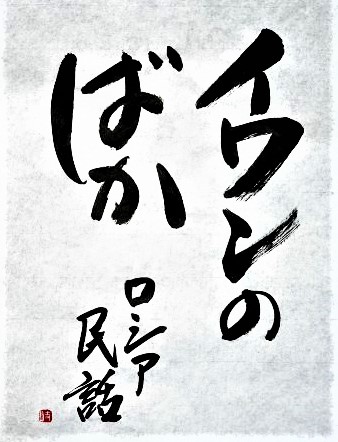 イワンの
ばか
ロシア
民話